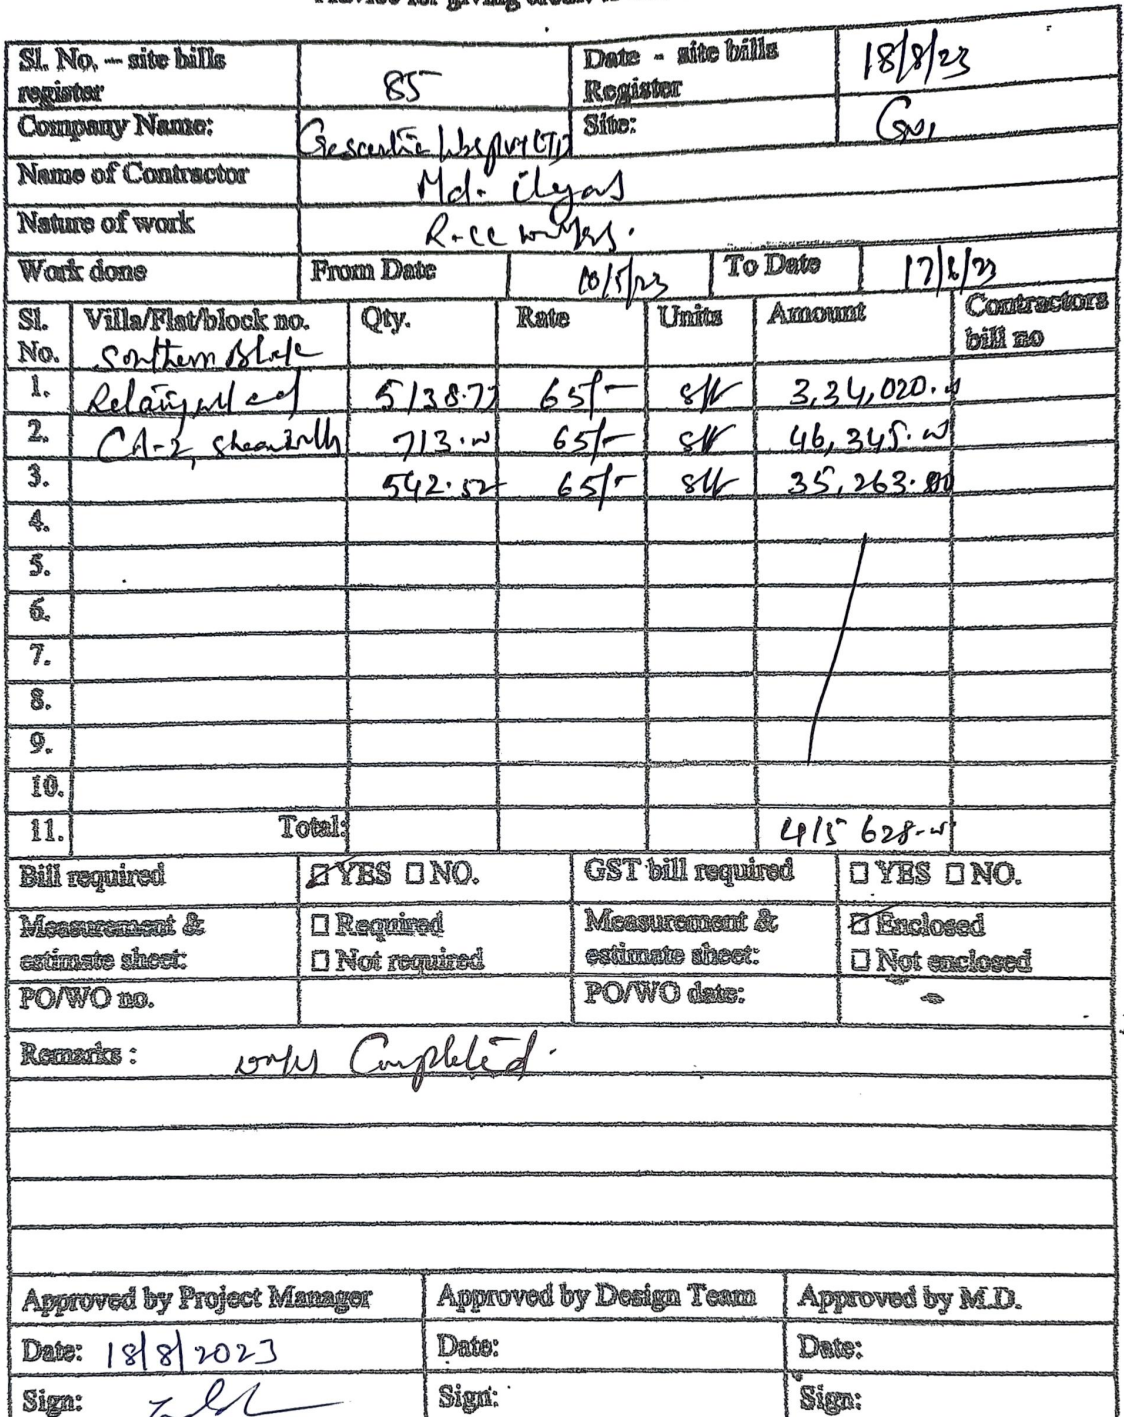 Advice for giving credit
Sl. No. – site bills register 85 Date - site bills Register 18/8/23
Company Name: PVT LTD Site:
Name of Contractor Md. ilyas
Nature of work R.cc works.
Work done From Date To Date
Sl. No. Villa/Flat/block no. Qty. Rate Units Amount Contractors bill no
Southern Block
1. 5138.77 65/- sft 3,34,020.00
2. CA-2, shearwalls 713.00 65/- sft 46,345.00
3. 542.52 65/- sft 35,263.00
4.
5.
6.
7.
8.
9.
10.
11. Total: 415 628.00
Bill required ☑ YES ☐ NO. GST bill required ☐ YES ☐ NO.
Measurement & estimate sheet: ☐ Required ☐ Not required Measurement & estimate sheet: ☑ Enclosed ☐ Not enclosed
PO/WO no. PO/WO date:
Remarks : works Completed.
Approved by Project Manager Approved by Design Team Approved by M.D.
Date: 18/8/2023 Date: Date:
Sign: Sign: Sign: